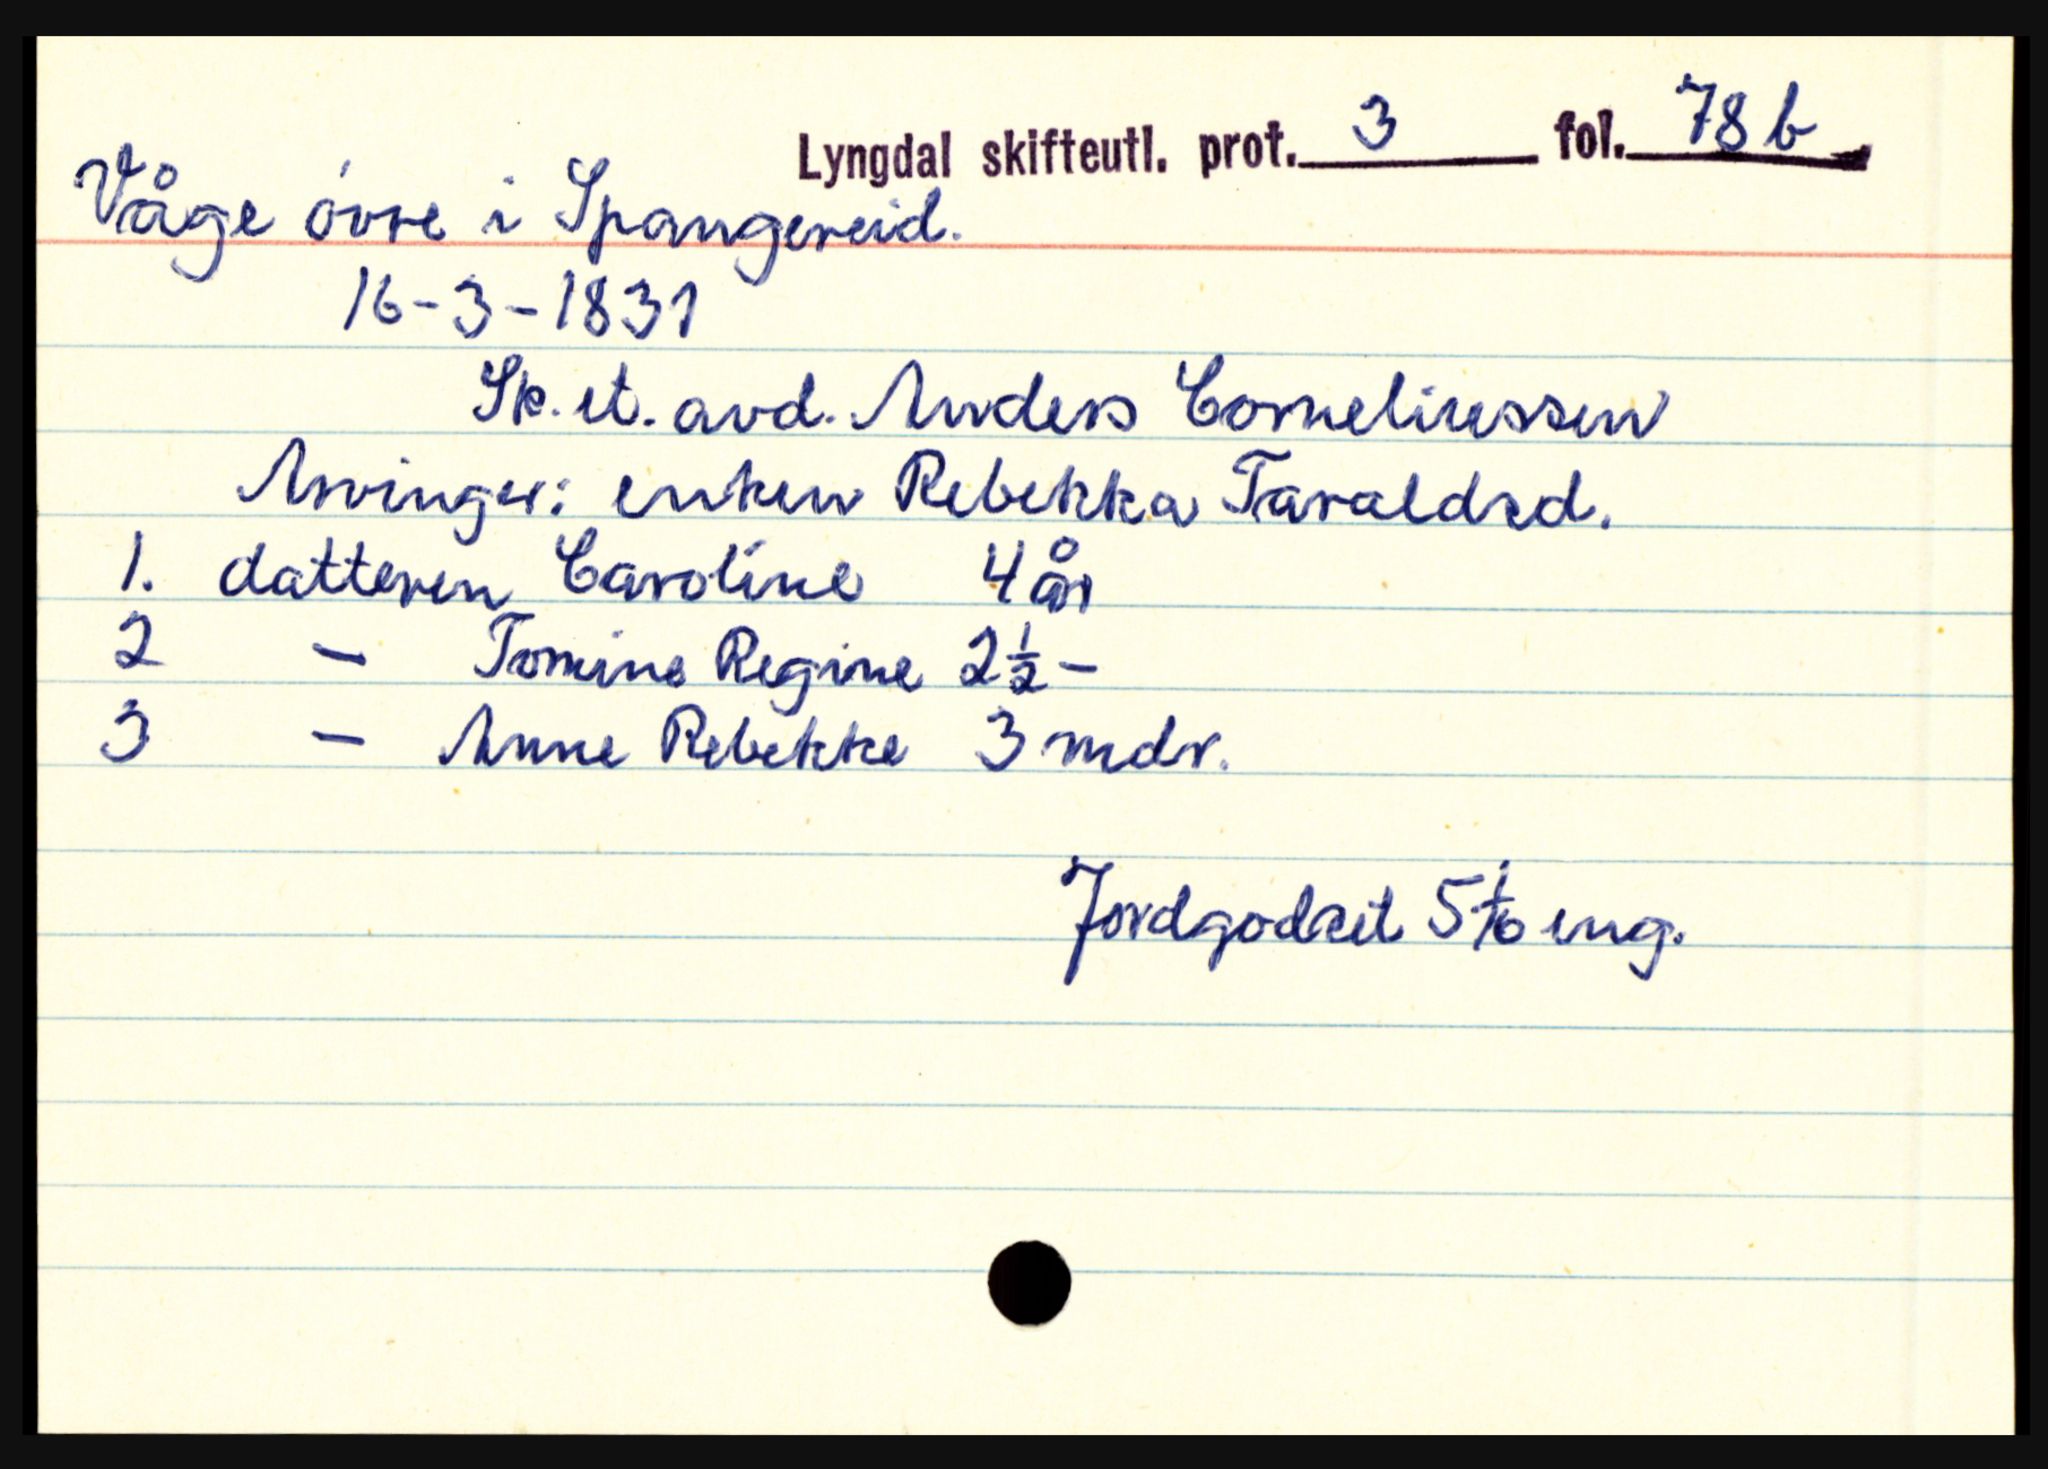 Lyngdal skifteutl. prot. 3 fol. 78 b
Våge óvre i Spangereid.
16-3-1831
Sk. et. avd. Anders Corneliussen
Arvinger: enken Rebekka Taraldsd.
1. datteren Caroline 4 år
2 - Tomine Regine 2 1/2 -
3 - Anne Rebekke 3 mdr.
Jordgodset 5 1/6 eng.